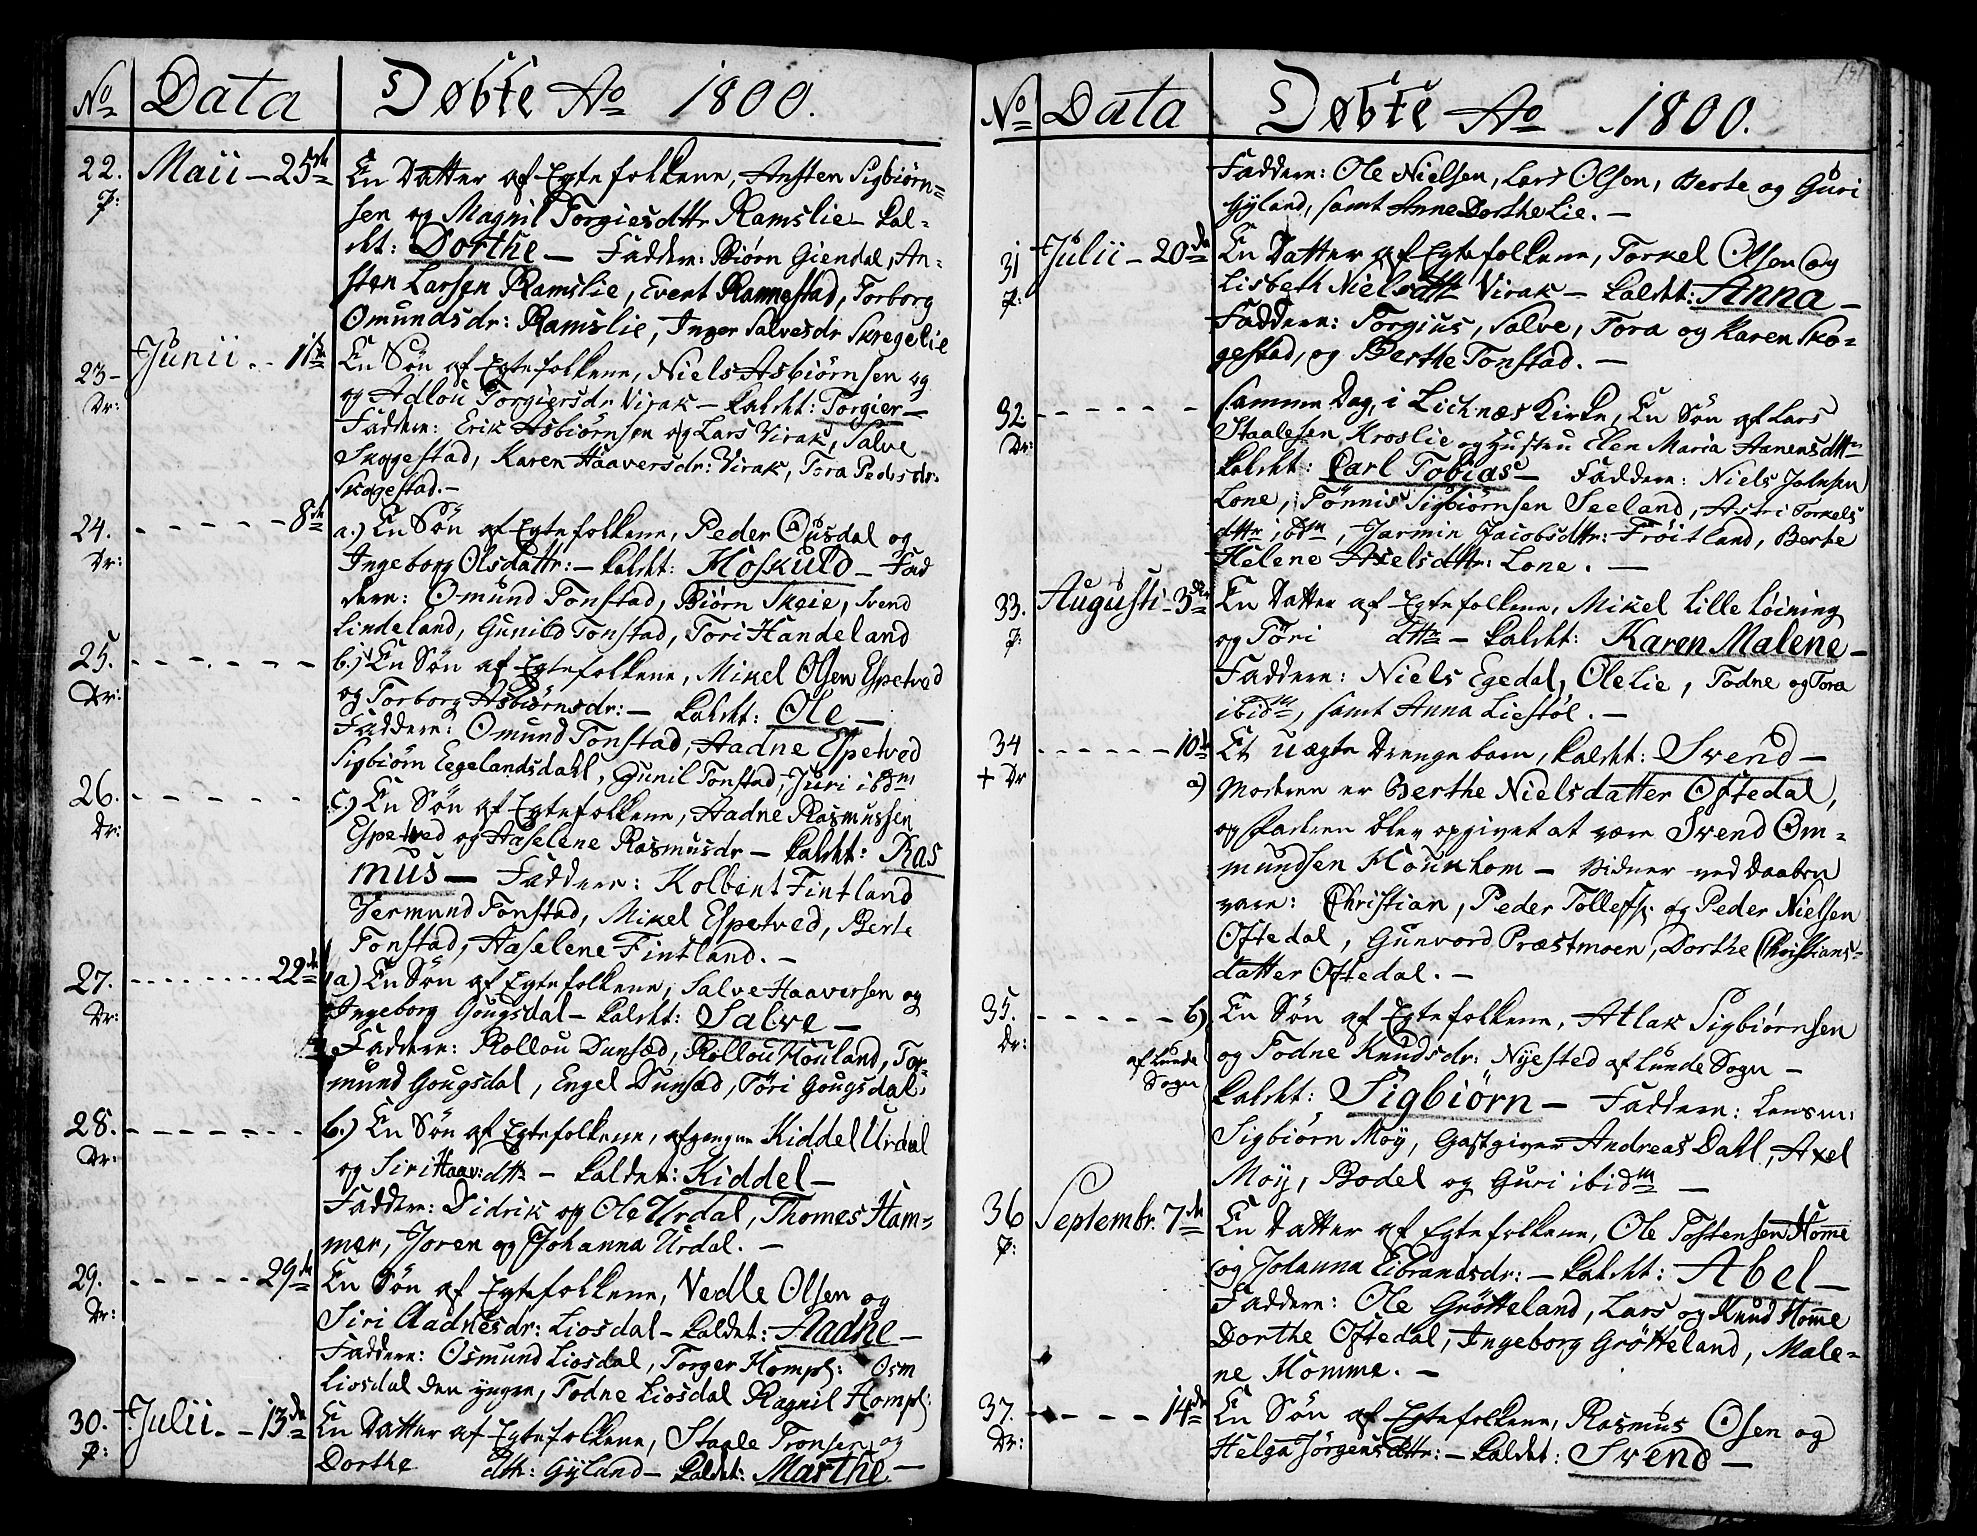 No Data Døbte Ao 1800.
22. Maii - 25de En Datter af Egtefolkene, Ansten Sigbiørn-
P: sen og Magnil Torgiesdttr Ramslie - kal-
det: Dorthe - Faddere: Biørn Giendal, An-
sten Larsen Ramslie, Evert Rannestad, Torborg
Omundsdr: Ramslie, Inger Salvesdr Skregelie
23- Junii - 1ste En Søn af Egtefolkene, Niels Asbiørnsen og
Dr: og Adlou Torgiersdr Virak - kaldet: Torgier -
Faddere: Erik Asbiørnsen og Lars Virak, Salve
Skogestad, Karen Haaversdr: Virak, Tora Pedersdr:
Skogestad. -
24. - - - - - - 8de a.) En Søn af Egtefolkene, Peder Ousdal og
Dr: Ingeborg Olsdattr: - kaldet: Hoskuld - Fad
dere: Omund Tonstad, Biørn Skeie, Svend
Lindeland, Gunild Tonstad, Tori Handeland
25. - - - - - - - b.) En Søn af Egtefolkene, Mikel Olsen Espetved
Dr: og Torborg Asbiørnsdr: - kaldet: Ole -
Faddere: Omund Tonstad, Aadne Espetved
Sigbiørn Eegelandsdahl, Gunil Tonstad, Juri ibdm
26. - - - - - - c.) En Søn af Egtefolkene, Aadne Rasmussen
Dr: Espetved og Aaselene Rasmusdr - kaldet: Ras
mus - Faddere: Kolbent Fintland
Vermund Tonstad, Mikel Espetved, Berte
Tonstad, Aaselene Fintland. -
27. - - - - - - 22de a) En Søn af Egtefolkene, Salve Haaversen og
Dr: Ingeborg Gougsdal - kaldet: Salve -
Faddere: Rollou Dunsæd, Rollou Houland, Tor-
mund Gougsdal, Engel Dunsæd, Töri Gougsdal.
28. - - - - - - - b.) En Søn af Egtefolkene, afgangne Kiddel Urdal
Dr: og Siri Haav:dttr - kaldet: Kiddel -
Faddere: Didrik og Ole Urdal, Thomes Ham-
mer, Joren og Johanna Urdal. -
29. - - - - - 29de En Søn af Egtefolkene, Vedle Olsen og
Dr: Siri Aadnesdr: Liosdal - kaldet: Aadne -
Faddere: Osmund Liosdal, Torger Hompl: Osm
Liosdal den yngre, Todne Liosdal Ragnil Hompl:
30. Julii - - 13de En Datter af Egtefolkene, Staale Tronsen og
P: Dorthe dttr: Gyland - kaldet: Marthe -
No Data Døbte Ao 1800.
131
Faddere: Ole Nielsen, Lars Olsen, Berte og Guri
Gyland, samt Anne Dorthe Lie. -
31 Julii - 20de En Datter af Egtefolkene, Torkel Olsen og
P: Lisbeth Nielsdttr Virak - kaldet: Anna -
Faddere: Torgius, Salve, Tora og Karen Sko-
gestad, og Berthe Tonstad. -
32. - - - - - - - samme Dag, i Lichnæs Kirke, En Søn af Lars
Dr: Staalesen Kroslie og Hustru Elen Maria Hanensdttr
kaldet: Carl Tobias - Faddere: Niels Johnsen
Lone, Tönnis Sigbiørnsen Seeland, Astri Torkels
dttr ibdm, Jarmin Jacobsdttr: Fröitland, Berte
Helene Axelsdttr: Lone. -
33. Augusti - 3die En Datter af Egtefolkene, Mikel Lille Löining
P: og Töri dttr - kaldet: Karen Malene -
Faddere: Niels Egedal, Ole Lie, Todne og Tora
ibidm, samt Anna Liestöl. -
34 - - - - - - - 10de Et uægte Drengebarn, kaldet: Svend -
+ Dr a) Moderen er Berthe Nielsdatter Oftedal,
og Faderen blev opgivet at være Svend Om-
mundsen Hounhom - Vidner ved Daaben
vare: Christian, Peder Tollefs: og Peder Nielsen
Oftedal, Gunvord Præstmoen, Dorthe Christians-
datter Oftedal. -
35. - - - - - - b) En Søn af Egtefolkene, Atlak Sigbiørnsen
Dr: af Lunde Sogn og Todne Knudsdr: Nyested af Lunde Sogn -
kaldet: Sigbiörn - Faddere: Lensm:
Sigbiørn Moÿ, Gastgiver Andreas Dahl, Axel
Moÿ, Bodel og Guri ibidm -
36 Septembr. 7de En Datter af Egtefolkene, Ole Tostensen Home
P: og Johanna Eibrandsdr: - kaldet: Abel -
Faddere: Ole Grötteland, Lars og Knud Home
Dorthe Oftedal, Ingeborg Grötteland, Male-
ne Homme. -
37. - - - - 14de En Søn af Egtefolkene, Rasmus Olsen og
Dr: Helga Jörgensdttr: - kaldet: Svend -